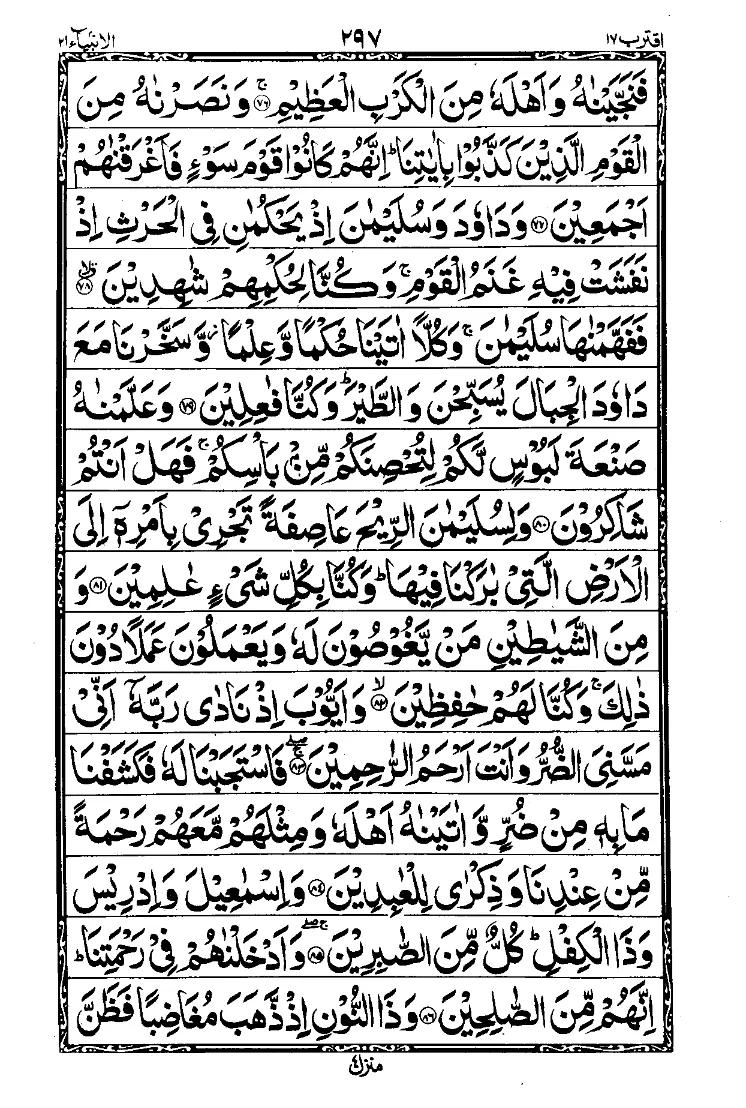 اقترب ١٧ ٢٩٧ الانبیاء ٢١
فَنَجَّیْنٰهُ وَاَهْلَهٗ مِنَ الْكَرْبِ الْعَظِیْمِ ۚ‏﴿۷۶﴾‏ وَنَصَرْنٰهُ مِنَ
الْقَوْمِ الَّذِیْنَ كَذَّبُوْا بِاٰیٰتِنَا ؕ اِنَّهُمْ كَانُوْا قَوْمَ سَوْءٍ فَاَغْرَقْنٰهُمْ
اَجْمَعِیْنَ ﴿۷۷﴾ وَدَاوٗدَ وَسُلَیْمٰنَ اِذْ یَحْكُمٰنِ فِی الْحَرْثِ اِذْ
نَفَشَتْ فِیْهِ غَنَمُ الْقَوْمِ ۚ وَكُنَّا لِحُكْمِهِمْ شٰهِدِیْنَ ﴿۷۸﴾
فَفَهَّمْنٰهَا سُلَیْمٰنَ ۚ وَكُلًّا اٰتَیْنَا حُكْمًا وَّعِلْمًا ؗ وَّسَخَّرْنَا مَعَ
دَاوٗدَ الْجِبَالَ یُسَبِّحْنَ وَالطَّیْرَ ؕ وَكُنَّا فٰعِلِیْنَ ﴿۷۹﴾ وَعَلَّمْنٰهُ
صَنْعَةَ لَبُوْسٍ لَّكُمْ لِتُحْصِنَكُمْ مِّنْۢ بَاْسِكُمْ ۚ فَهَلْ اَنْتُمْ
شَاكِرُوْنَ ﴿۸۰﴾ وَلِسُلَیْمٰنَ الرِّیْحَ عَاصِفَةً تَجْرِیْ بِاَمْرِهٖۤ اِلَی
الْاَرْضِ الَّتِیْ بٰرَكْنَا فِیْهَا ؕ وَكُنَّا بِكُلِّ شَیْءٍ عٰلِمِیْنَ ﴿۸۱﴾ وَ
مِنَ الشَّیٰطِیْنِ مَنْ یَّغُوْصُوْنَ لَهٗ وَیَعْمَلُوْنَ عَمَلًا دُوْنَ
ذٰلِكَ ۚ وَكُنَّا لَهُمْ حٰفِظِیْنَ ۙ﴿۸۲﴾ وَاَیُّوْبَ اِذْ نَادٰی رَبَّهٗۤ اَنِّیْ
مَسَّنِیَ الضُّرُّ وَاَنْتَ اَرْحَمُ الرّٰحِمِیْنَ ۚۖ﴿۸۳﴾ فَاسْتَجَبْنَا لَهٗ فَكَشَفْنَا
مَا بِهٖ مِنْ ضُرٍّ وَّاٰتَیْنٰهُ اَهْلَهٗ وَمِثْلَهُمْ مَّعَهُمْ رَحْمَةً
مِّنْ عِنْدِنَا وَذِكْرٰی لِلْعٰبِدِیْنَ ﴿۸۴﴾ وَاِسْمٰعِیْلَ وَاِدْرِیْسَ
وَذَا الْكِفْلِ ؕ كُلٌّ مِّنَ الصّٰبِرِیْنَ ۚۖ﴿۸۵﴾ وَاَدْخَلْنٰهُمْ فِیْ رَحْمَتِنَا ؕ
اِنَّهُمْ مِّنَ الصّٰلِحِیْنَ ﴿۸۶﴾ وَذَا النُّوْنِ اِذْ ذَّهَبَ مُغَاضِبًا فَظَنَّ
منزل ٤